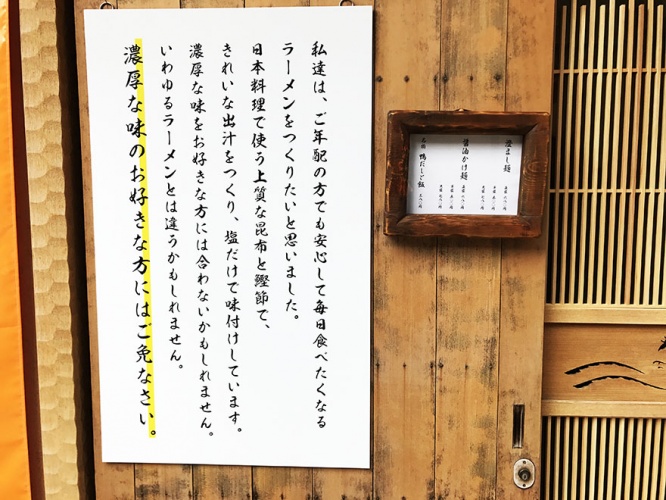 私達は、ご年配の方でも安心して毎日食べたくなる
ラーメンをつくりたいと思いました。
日本料理で使う上質な昆布と鰹節で、
きれいな出汁をつくり、塩だけで味付けしています。
濃厚な味をお好きな方には合わないかもしれません。
いわゆるラーメンとは違うかもしれません。
濃厚な味のお好きな方にはご免なさい。
澄まし麺
醤油かけ麺
鴨だしご飯